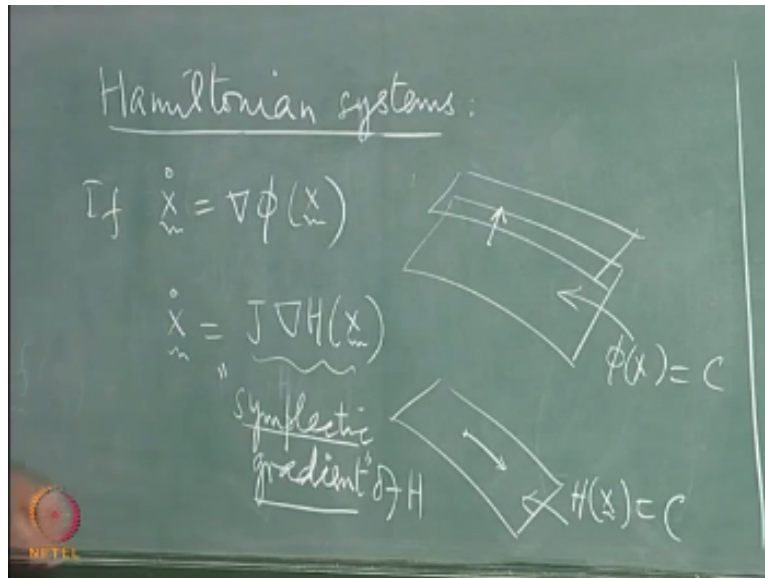 Hamiltonian systems:
If ẋ = ∇ϕ(x)
ϕ(x) = C
ẋ = J∇H(x)
"symplectic
gradient" of H
H(x) = C
NPTEL